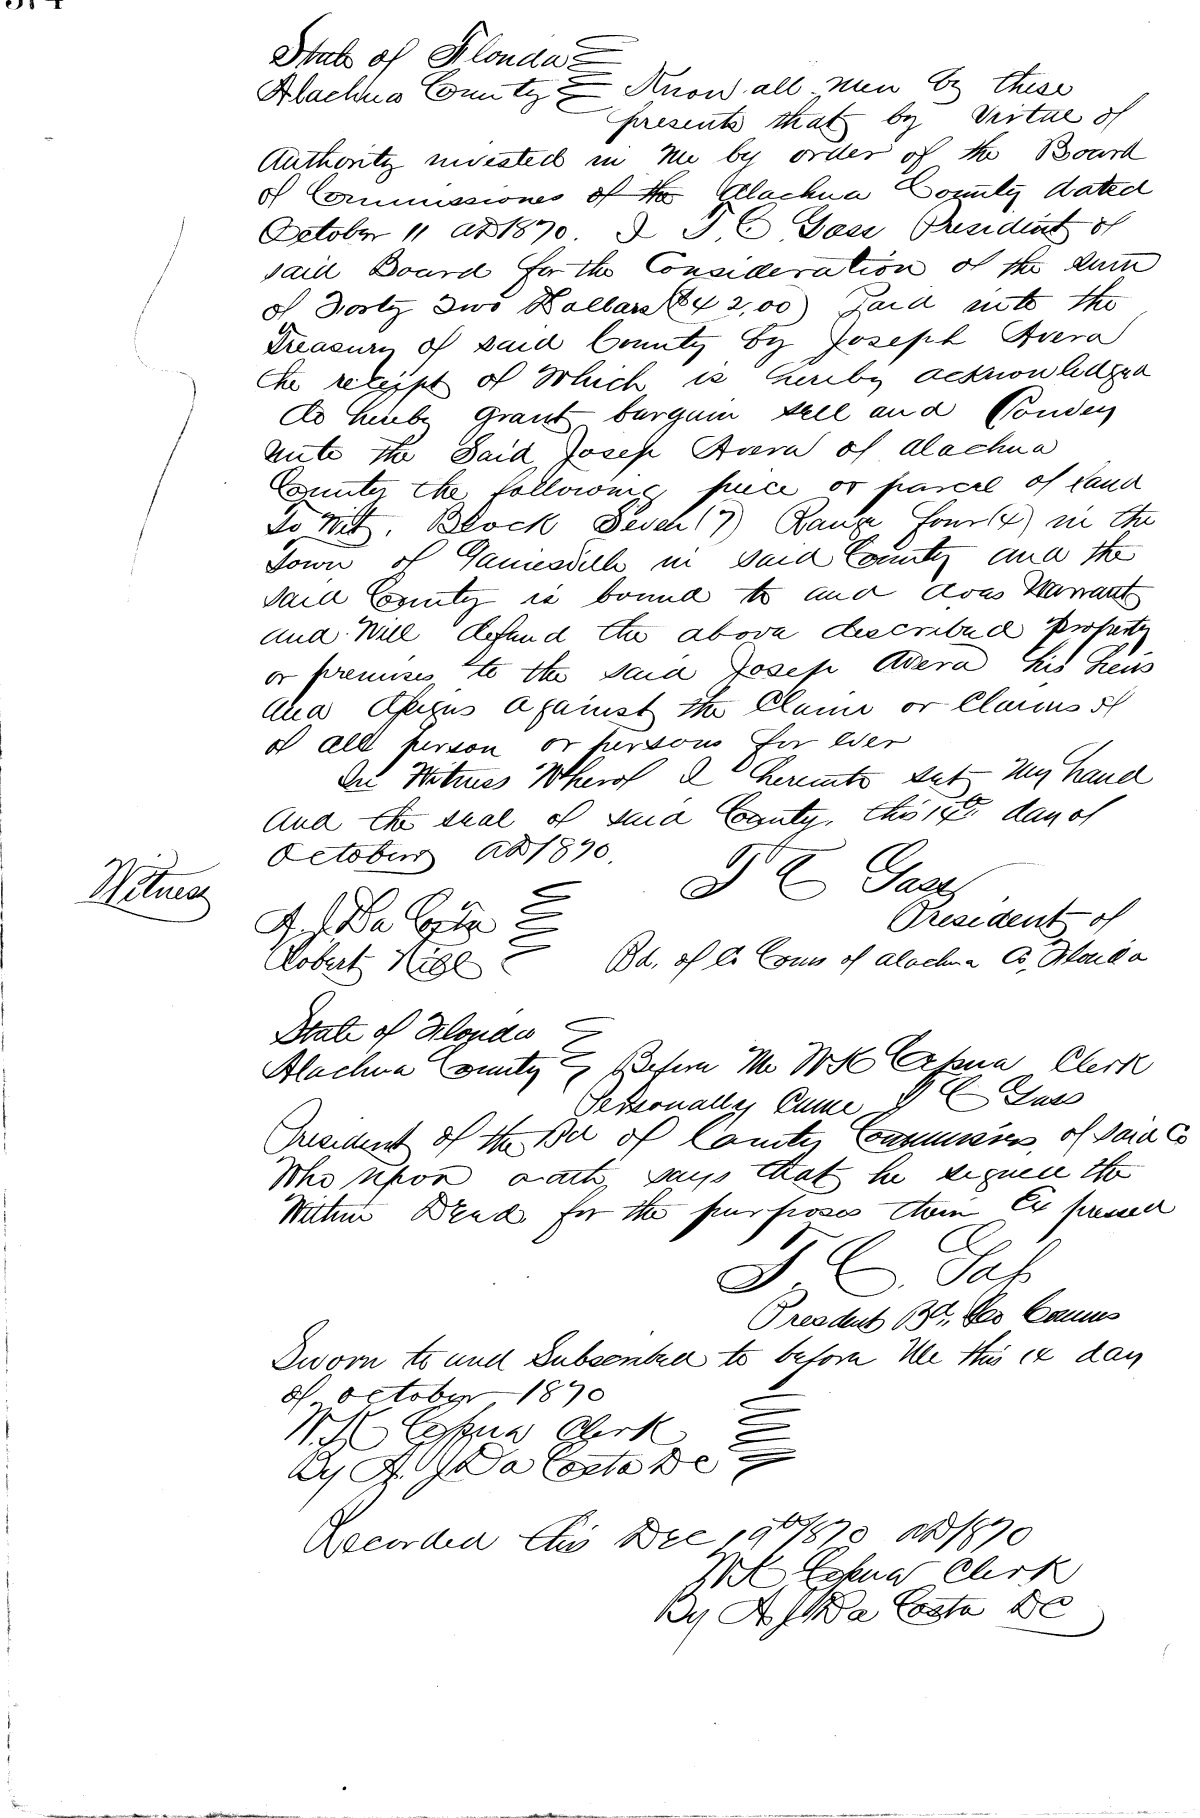 State of Florida
Alachua County Know all men by these
presents that by Virtue of
Authority invested in Me by order of the Board
of Commissiones of the Alachua County dated
October 11 AD 1870. I T. C. Gass President of
said Board for the Consideration of the sum
of Forty Two Dollars ($42,00) Paid into the
Treasury of said County by Joseph Avera
the receipt of Which is hereby acknowledged
do hereby grant bargain sell and Convey
unto the Said Josep Avera of Alachua
County the following piece or parcel of land
To Wit, Block Seven (7) Range four (4) in the
Town of Gainesville in said County and the
said County is bound to and does Warrant
and Will defend the above described Property
or premises to the said Josep Avera his heirs
and Assigns against the Claim or Claims of
of all person or persons for ever
In Witness Wherof I hereunto set My hand
and the seal of said County, this 14th day of
October AD 1870.
T C Gass
Witness
President of
A. J. Da Costa
Robert
Bd. of Co Coms of Alachua Co, Florida
State of Florida
Alachua County Before Me W K Cessna Clerk
Personally Came T C Gass
President of the Bd of County Commissiners, of said Co
Who upon oath, says that he signed the
Within Deed for the purposes therin Expressed
T. C. Gass
Presdent Bd. Co Comms
Sworn to and Subscribed to before Me this 14 day
of October 1870
W. K. Cessna Clerk
By A. J Da Costa DC
Recorded this Dec 19th 1870 AD 1870
W K Cessna Clerk
By A J Da Costa DC